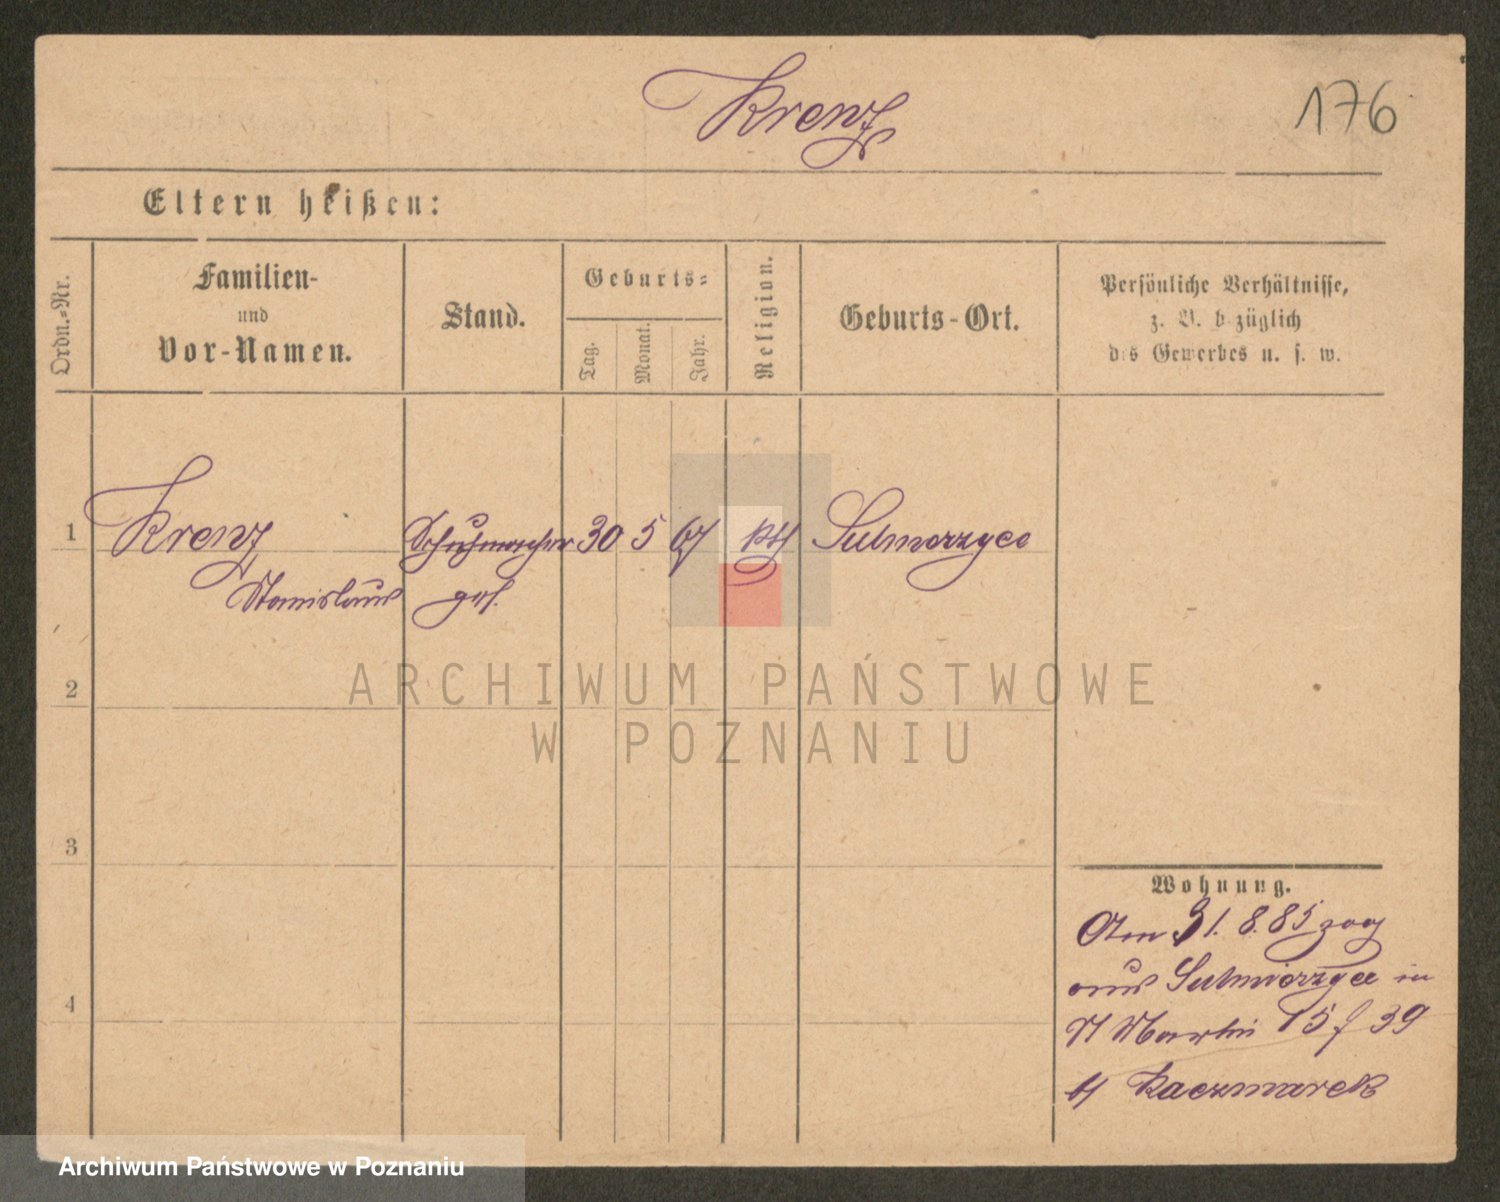 Krenz
176
Eltern heißen:
Ordn.-Nr.
Familien-
und
Vor-Namen.
Stand.
Geburts-
Tag.
Monat.
Jahr.
Religion.
Geburts-Ort.
Persönliche Verhältnisse,
z. B. bezüglich
des Gewerbes u. s. w.
1 Krenz Schuhmacher 30 5 67 kth Sulmerzyce
Stanislaus ges.
2
3
4
Wohnung.
Am 31. 8. 85 zog
aus Sulmierzyce in
St Martin 15 / 39
b/ Kaczmarek
ARCHIWUM PAŃSTWOWE
W POZNANIU
Archiwum Państwowe w Poznaniu